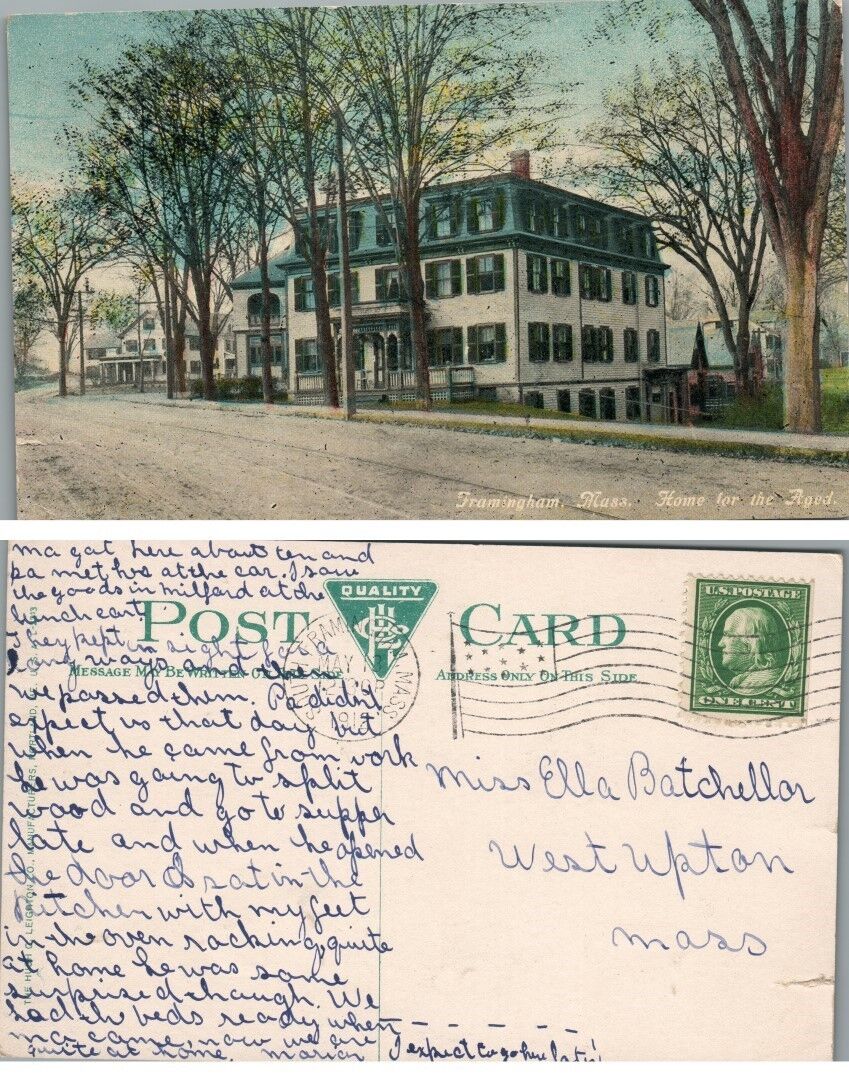 Framingham, Mass. Home for the Aged.
ma got here about ten and
pa met her at the car. I saw
the goods in Milford at the
lunch cart
They kept in sight for a
long ways and then
we passed them. Pa didnt
expect us that day but
when he came from work
he was going to split
wood and go to supper
late and when he opened
the door I sat in the
kitchen with my feet
in the oven rocking, quite
at home he was some
surprised though. We
had the beds ready when
ma came, now we are
quite at home. Marian
QUALITY
POST CARD
MESSAGE MAY BE WRITTEN ON THIS SIDE
ADDRESS ONLY ON THIS SIDE
FRAMINGHAM
MAY
MASS
U.S. POSTAGE
ONE CENT
THE HUGH C. LEIGHTON CO., MANUFACTURERS, PORTLAND, ME., U.S.A.
Miss Ella Batchellor
West Upton
Mass
I expect to go here later!